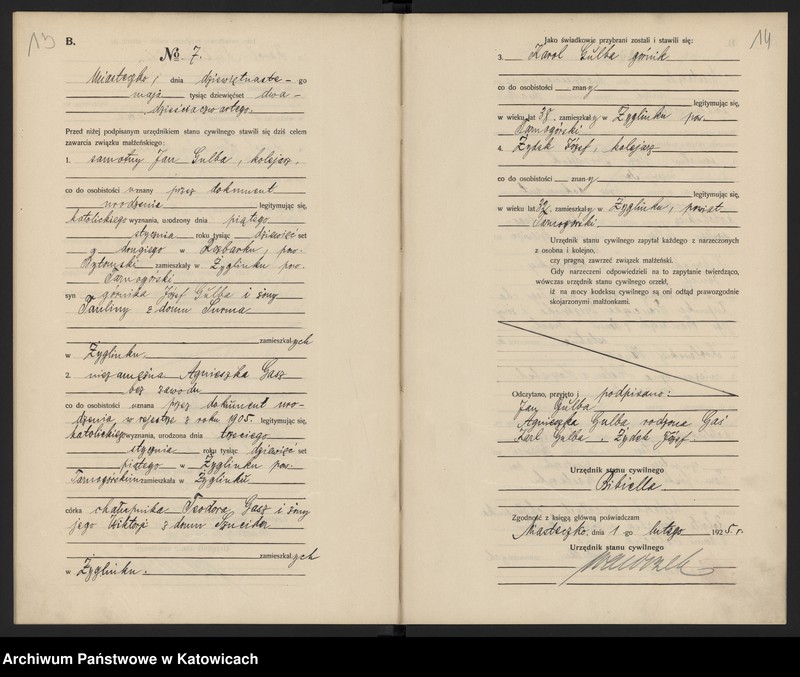 13
B.
No 7.
Miasteczko, dnia dziewiętnaste-go
maja tysiąc dziewięćset dwa-
dziestaczwartego.
Przed niżej podpisanym urzędnikiem stanu cywilnego stawili się dziś celem
zawarcia związku małżeńskiego:
1. samotny Jan Gulba, kolejarz,
co do osobistości uznany przez dokument
urodzenia legitymując się,
katolickiego wyznania, urodzony dnia piątego
stycznia roku tysiąc dziewięć set
drugiego w Rozbarku, pow.
Bytomski zamieszkały w Żyglinku pow.
Tarnogórski
syn górnika Józef Gulba i żony
Pauliny z domu Surma
zamieszkałych
w Żyglinku.
2. niezamężna Agnieszka Gasz
bez zawodu
co do osobistości uznana przez dokument uro-
dzenia w rejestrze z roku 1905. legitymując się,
katolickiego wyznania, urodzona dnia trzeciego
stycznia roku tysiąc dziewięć set
piątego w Żyglinku pow.
Tarnogórskim zamieszkała w Żyglinku.
córka chałupnika Teodora Gasz i żony
jego Wiktorji z domu
zamieszkałych
w Żyglinku.
14
Jako świadkowie przybrani zostali i stawili się:
3. Karol Gulba górnik
co do osobistości znany
legitymując się,
w wieku lat 38. zamieszkały w Żyglinku pow.
Tarnogórski
4. Żydek Józef, kolejarz
co do osobistości znany
legitymując się,
w wieku lat zamieszkały w Żyglinku, powiat
Tarnogórski.
Urzędnik stanu cywilnego zapytał każdego z narzeczonych
z osobna i kolejno,
czy pragną zawrzeć związek małżeński.
Gdy narzeczeni odpowiedzieli na to zapytanie twierdząco,
wówczas urzędnik stanu cywilnego orzekł,
iż na mocy kodeksu cywilnego są oni odtąd prawozgodnie
skojarzonymi małżonkami.
Odczytano, przyjęto i podpisano:
Jan Gulba
Agnieszka Gulba rodzona Gaś
Karl Gulba. Żydek Józef.
Urzędnik stanu cywilnego
Bibiella.
Zgodność z księgą główną poświadczam
Miasteczko, dnia 1-go lutego 1925 r.
Urzędnik stanu cywilnego
Archiwum Państwowe w Katowicach